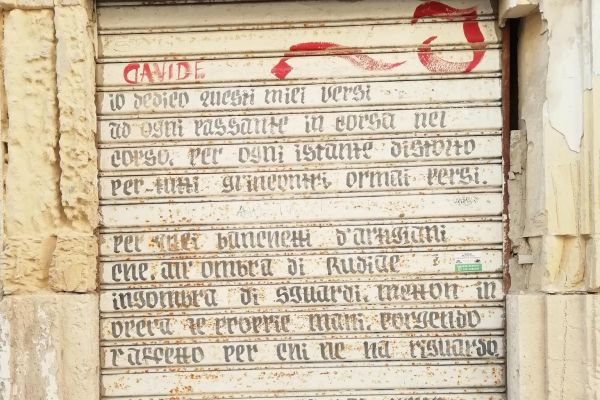 DAVIDE
io dedico questi miei versi
ad ogni passante in corsa nel
corso, per ogni istante distorto
per tutti gl'incontri ormai persi.
per quei banchetti d'artigiani
che, all'ombra di Rudiae
ingombra di sguardi, metton in
opera le proprie mani, porgendo
l'affetto per chi ne ha riguardo.